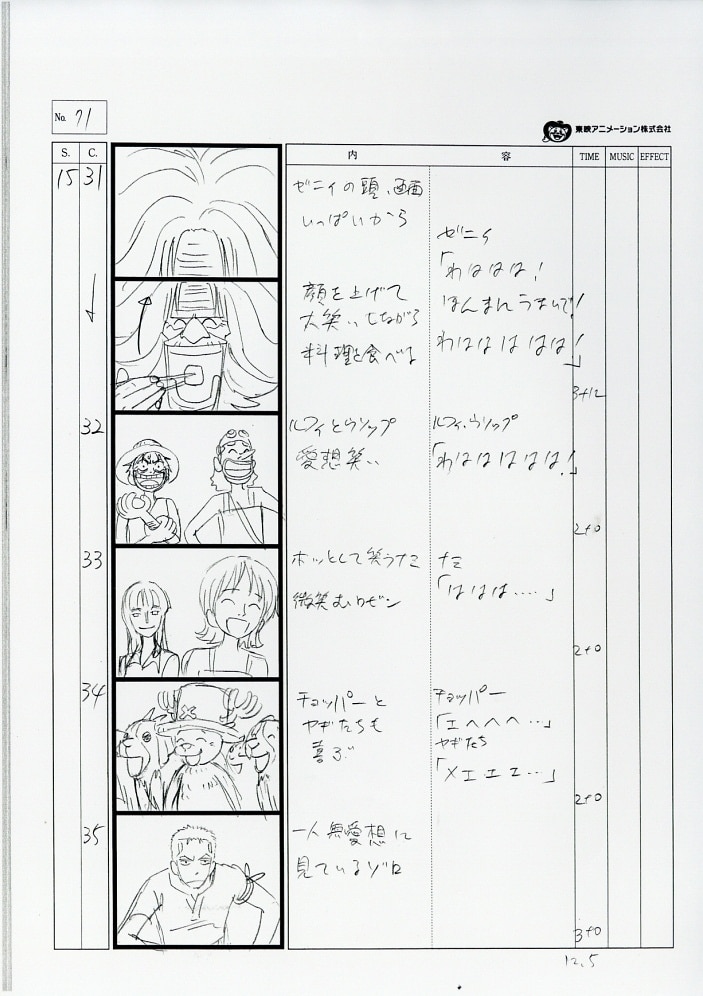 No. 71
東映アニメーション株式会社
S. C. 内 容 TIME MUSIC EFFECT
15 31
ゼニィの頭、画面
いっぱいから
ゼニィ
「わははは!
ほんまんうまいで!
わははははは!」
顔を上げて
大笑いしながら
料理を食べる
3+12
32
ルフィとウソップ
愛想笑い
ルフィ・ウソップ
「わはははははは!」
2+0
33
ホッとして笑うナミ
微笑むロビン
ナミ
「ははは‥‥」
2+0
34
チョッパーと
ヤギたちも
喜ぶ
チョッパー
「エヘヘヘ‥」
ヤギたち
「メエエエ‥」
2+0
35
一人無愛想に
見ているゾロ
3+0
12.5